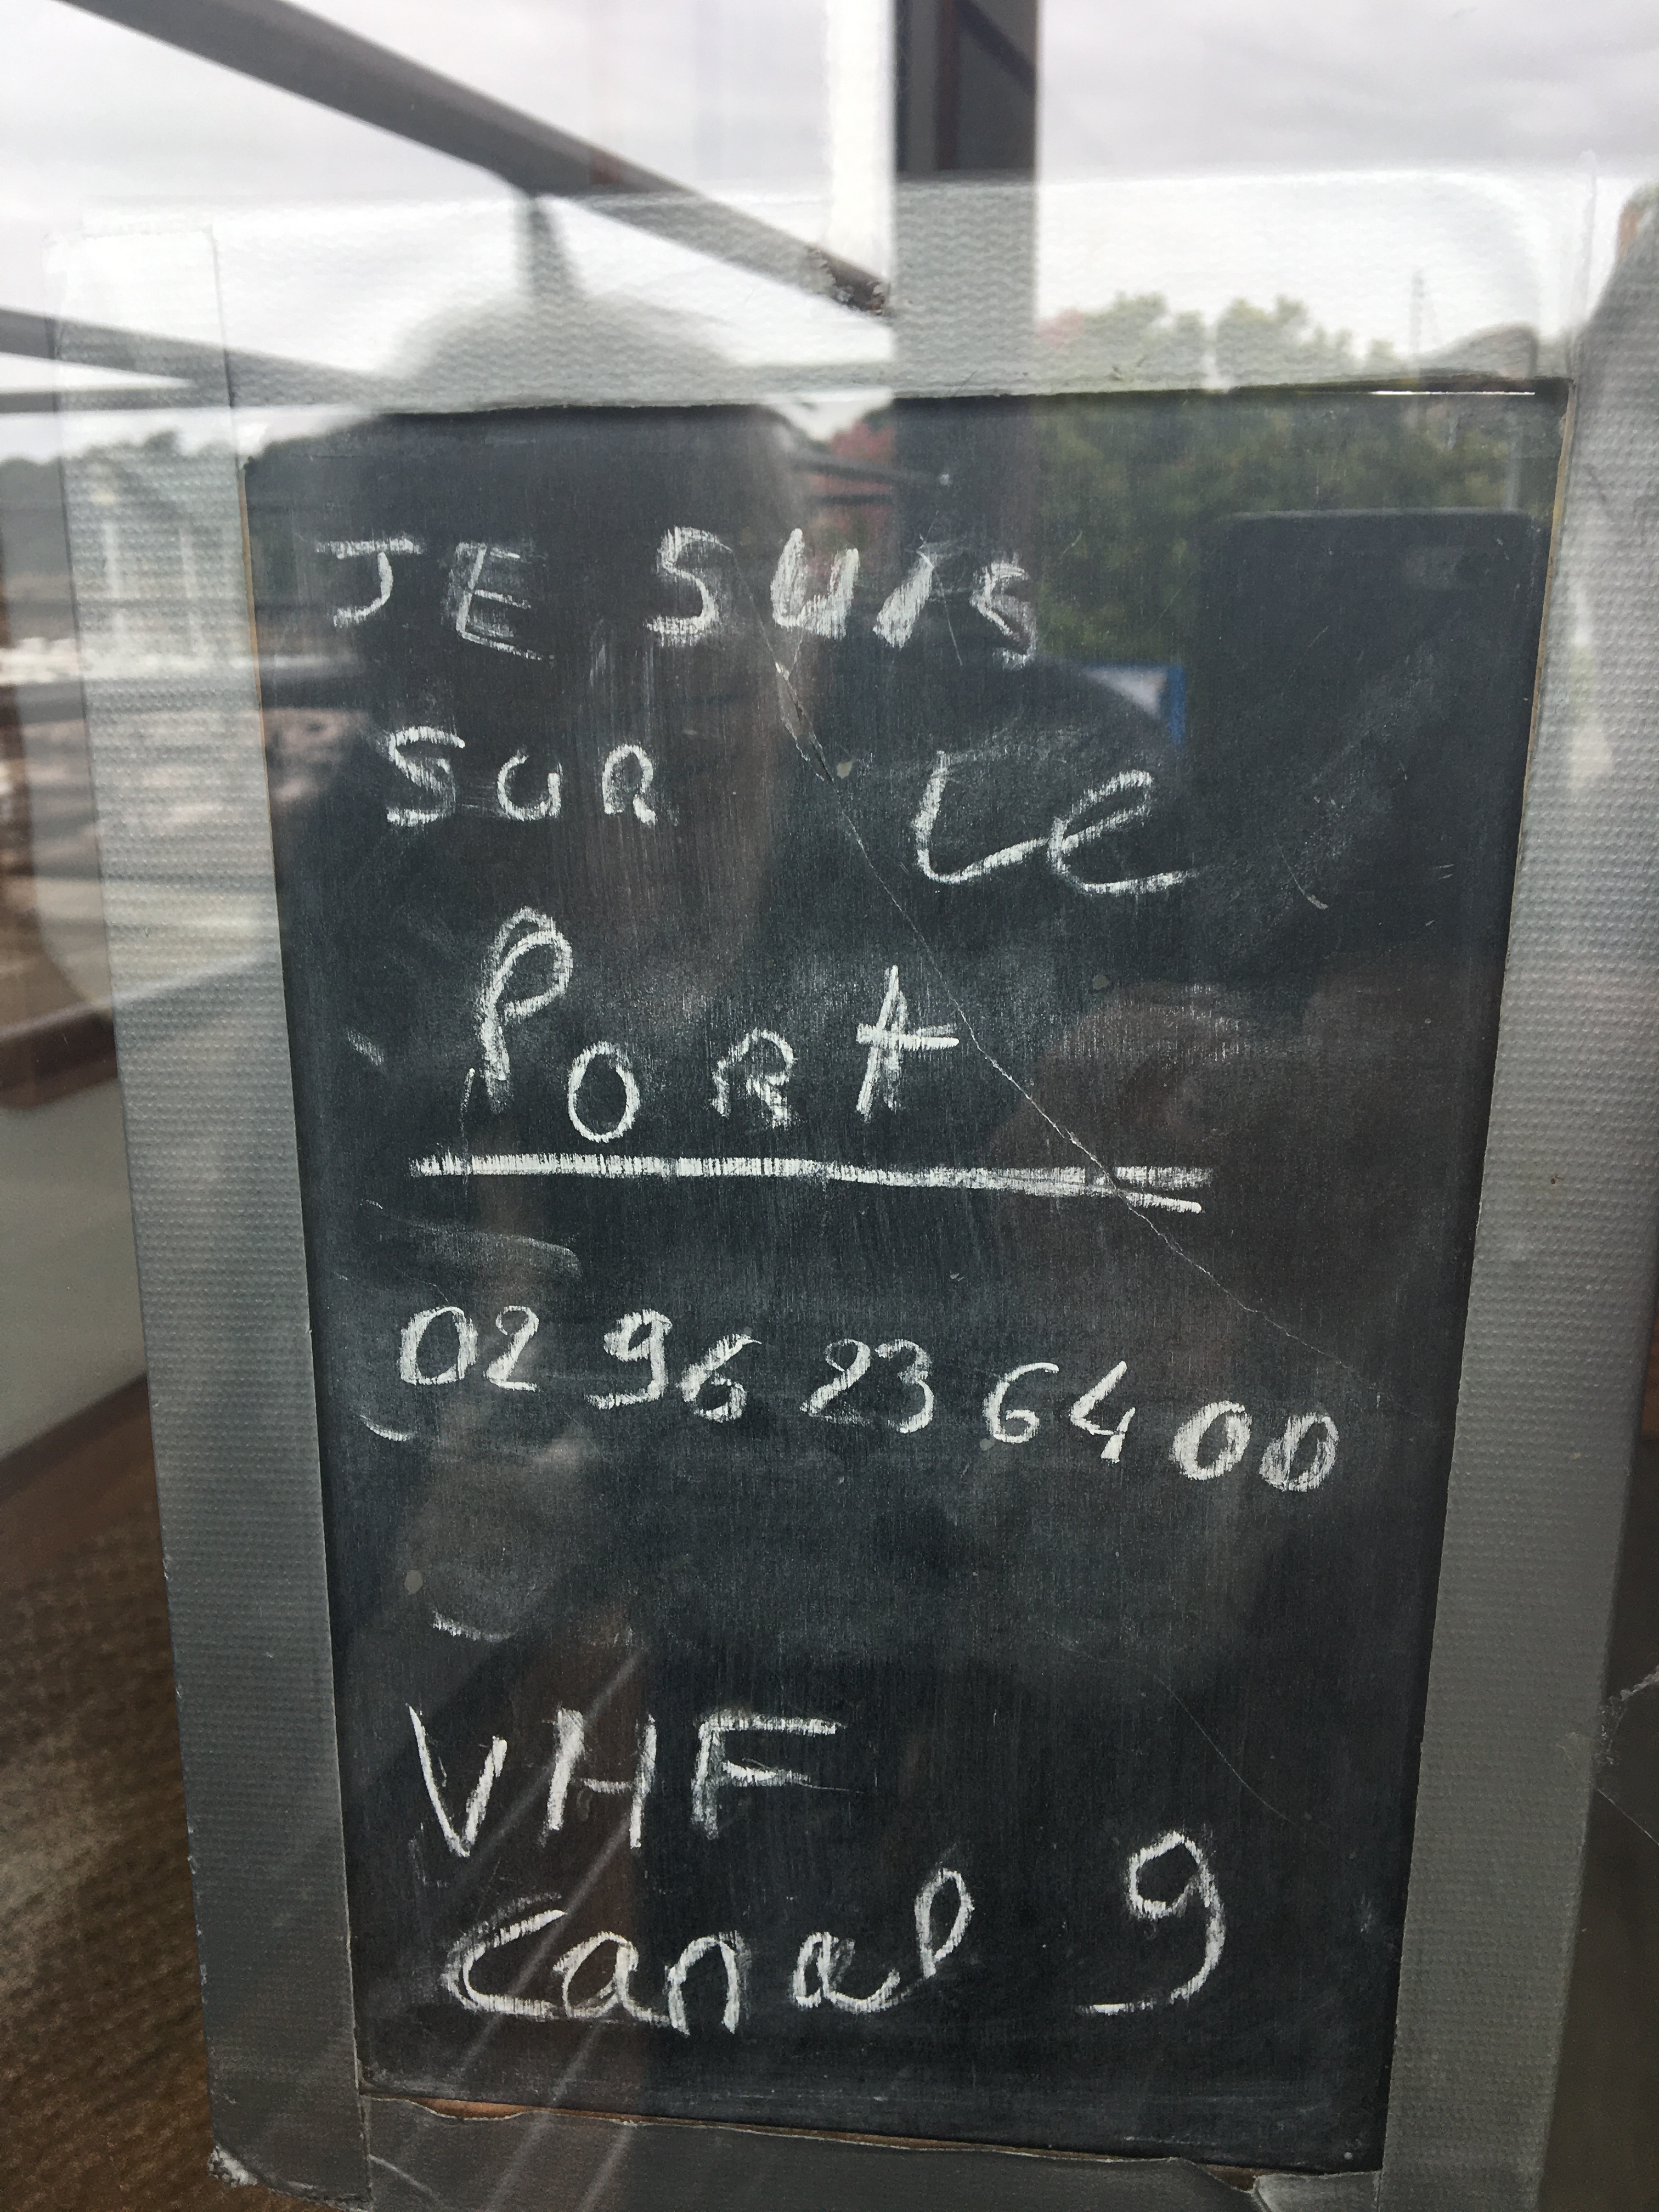 JE SUIS
SUR Le
PORt
02 96 23 64 00
VHF
Canal 9